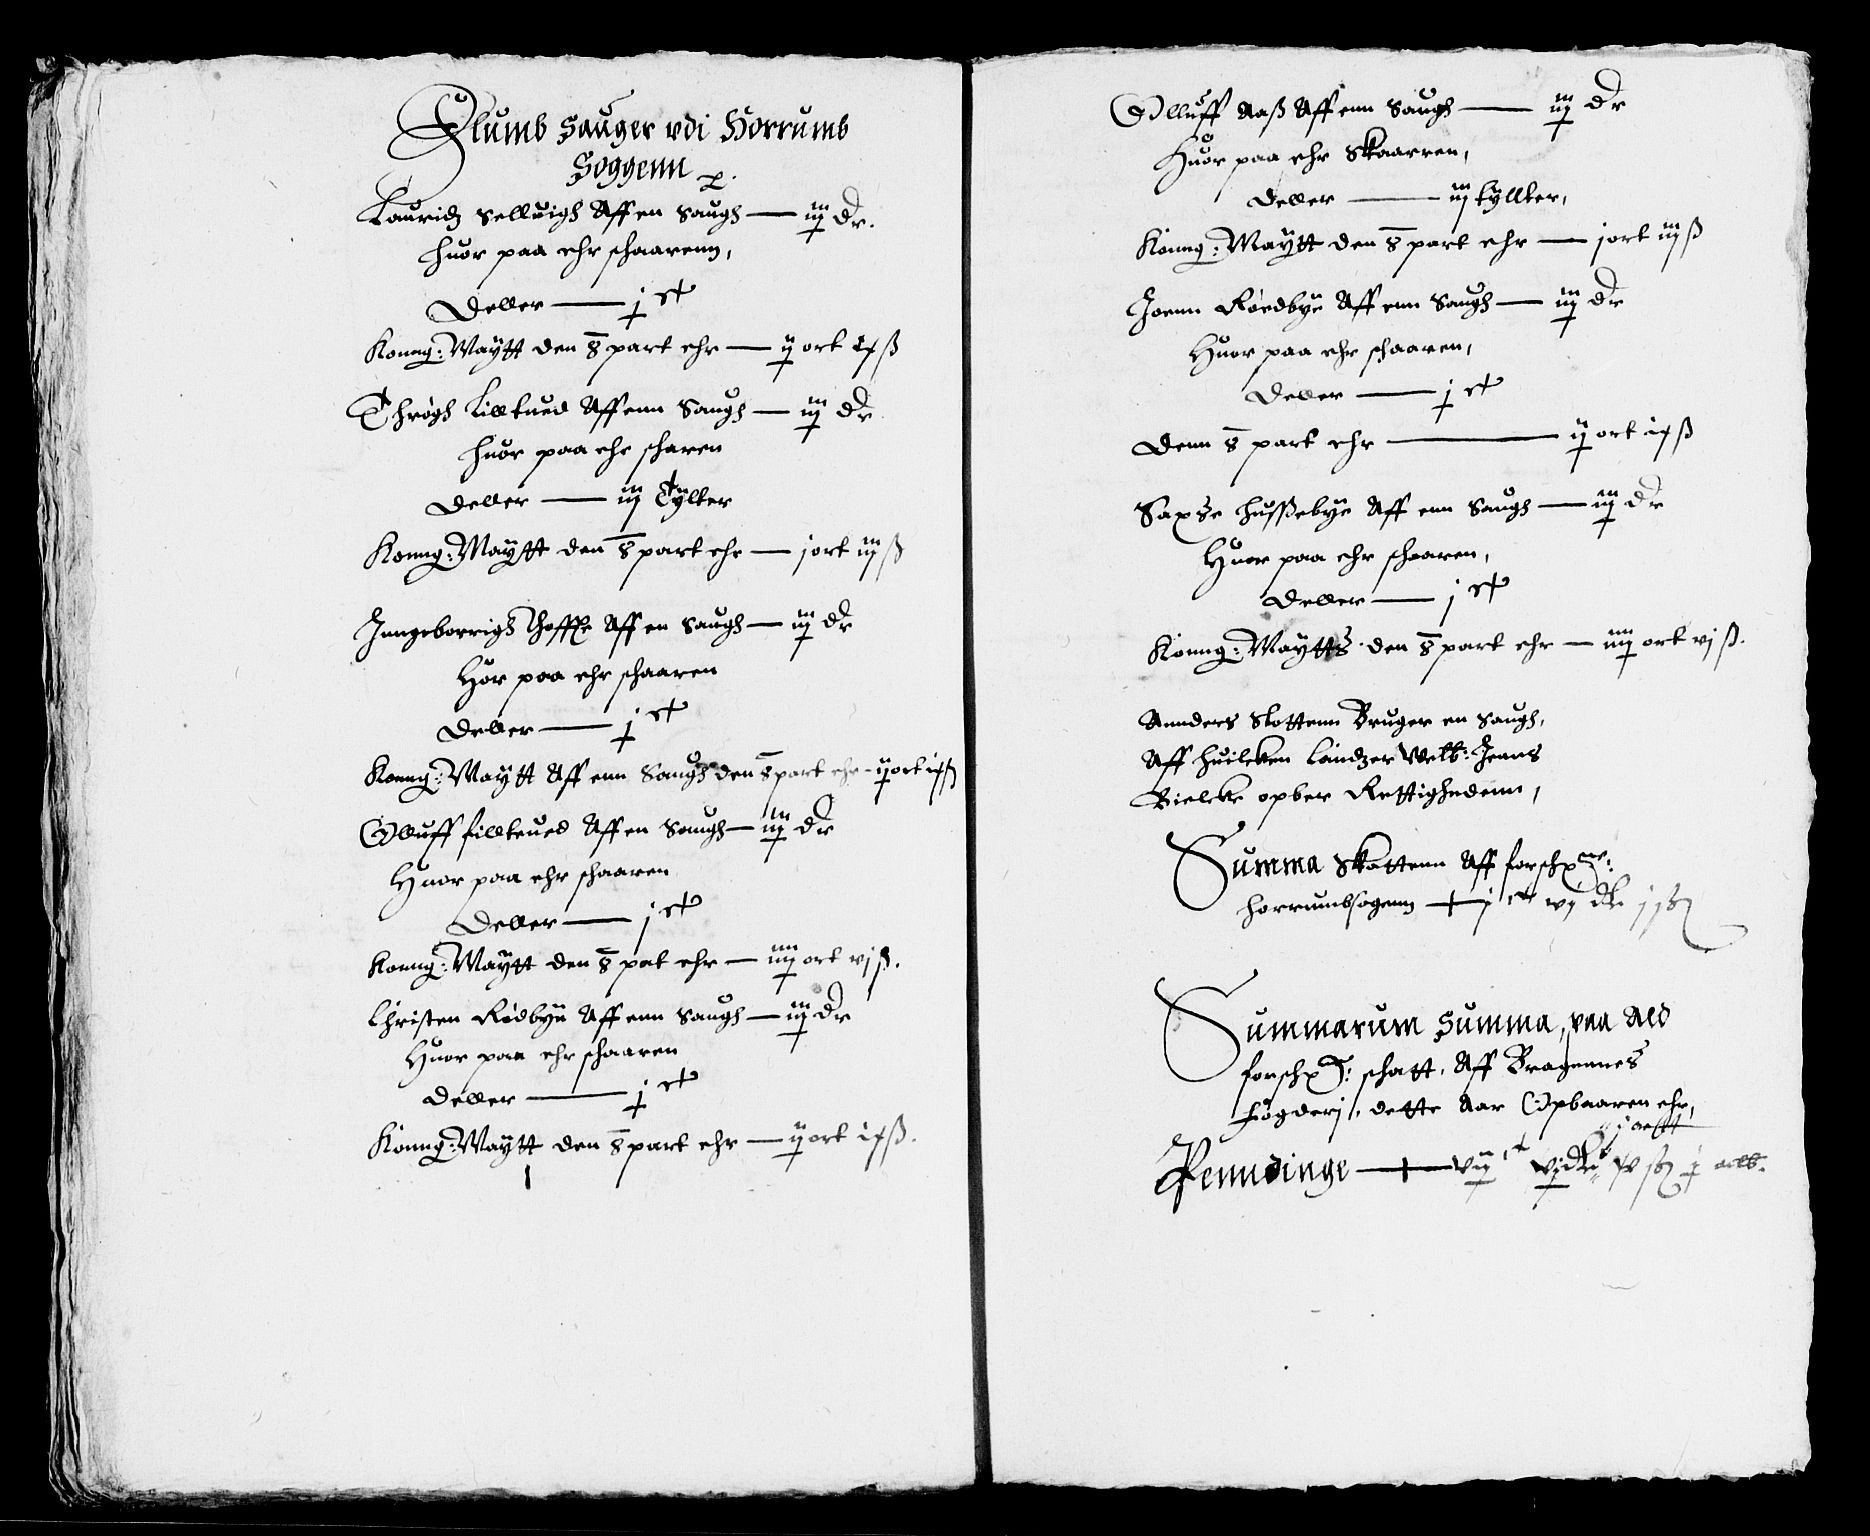 Flumb Sauger vdi Horrumb
Soggenn
LauridzSelluigh Aff en Saugh — iij dr.
huor paa ehr schaarenn,
Deller — j ct
Konng: Maytt den 8 part ehr — ij ort iß
Throgh Killtued Aff enn Saugh — iij dr
huor paa ehr scharen
Deller — iij Tylter
Konng: Maytt den 8 part ehr — j ort iij ß
Jnngeborrigh Thoffte Aff en Saugh — iij dr
Hor paa ehr schaaren
Deller — j ct
Konng: Maytt Aff enn Saugh den 8 part ehr – ij ort
Olluff killtued Aff en Saugh — iij dr
Huor paa ehr schaaren
Deller — j ct
Konng: Maytt den 8 pat ehr — iiij ort vj ß.
Christen Rødbye Aff enn Saugh — iij dr
Huor paa ehr schaaren
Deller — j ct
Konng: Maytt den 8 part ehr — ij ort ß.
Olluff Aaß Aff enn Saugh — iij dr
Huor paa ehr Skaarren,
Deller — iij tyllter,
Konng: Maytt den 8 part ehr — j ort iij ß
Joenn Røedbye Aff enn Saugh — iij dr
Huor paa ehr schaaren,
Deller — j ct
Denn 8 part ehr — ij ort ß
Saxse hussebye Aff enn Saugh — iij dr
Huor paa ehr schaaren,
Deller — j ct
Konng: Maytts den 8 part ehr — iiij ort vj ß.
Annders Slottenn Bruger en Saugh,
Aff huilcken Landzer Welb: Jenns
Bielcke opber Rettighedenn,
Summa Skattenn Aff forschne:
horrumbsogenn — j ct vj dlr
Summarum Summa, paa Ald
forschne: schatt, Aff Bragennes
fögderj, dette Aar Opbaaren ehr,
j ortt
Penndinge — vij ct vj dlr ß alb.